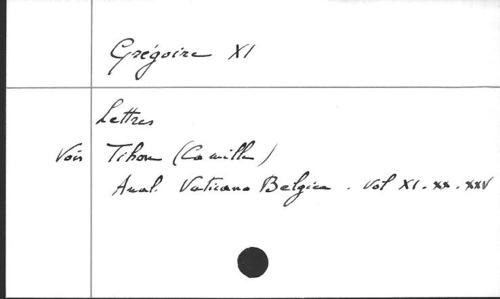 Grégoire XI
Lettres
Voir Tihon (Camille)
Anal. Vaticano Belgica. Vol XI. XX. XXV